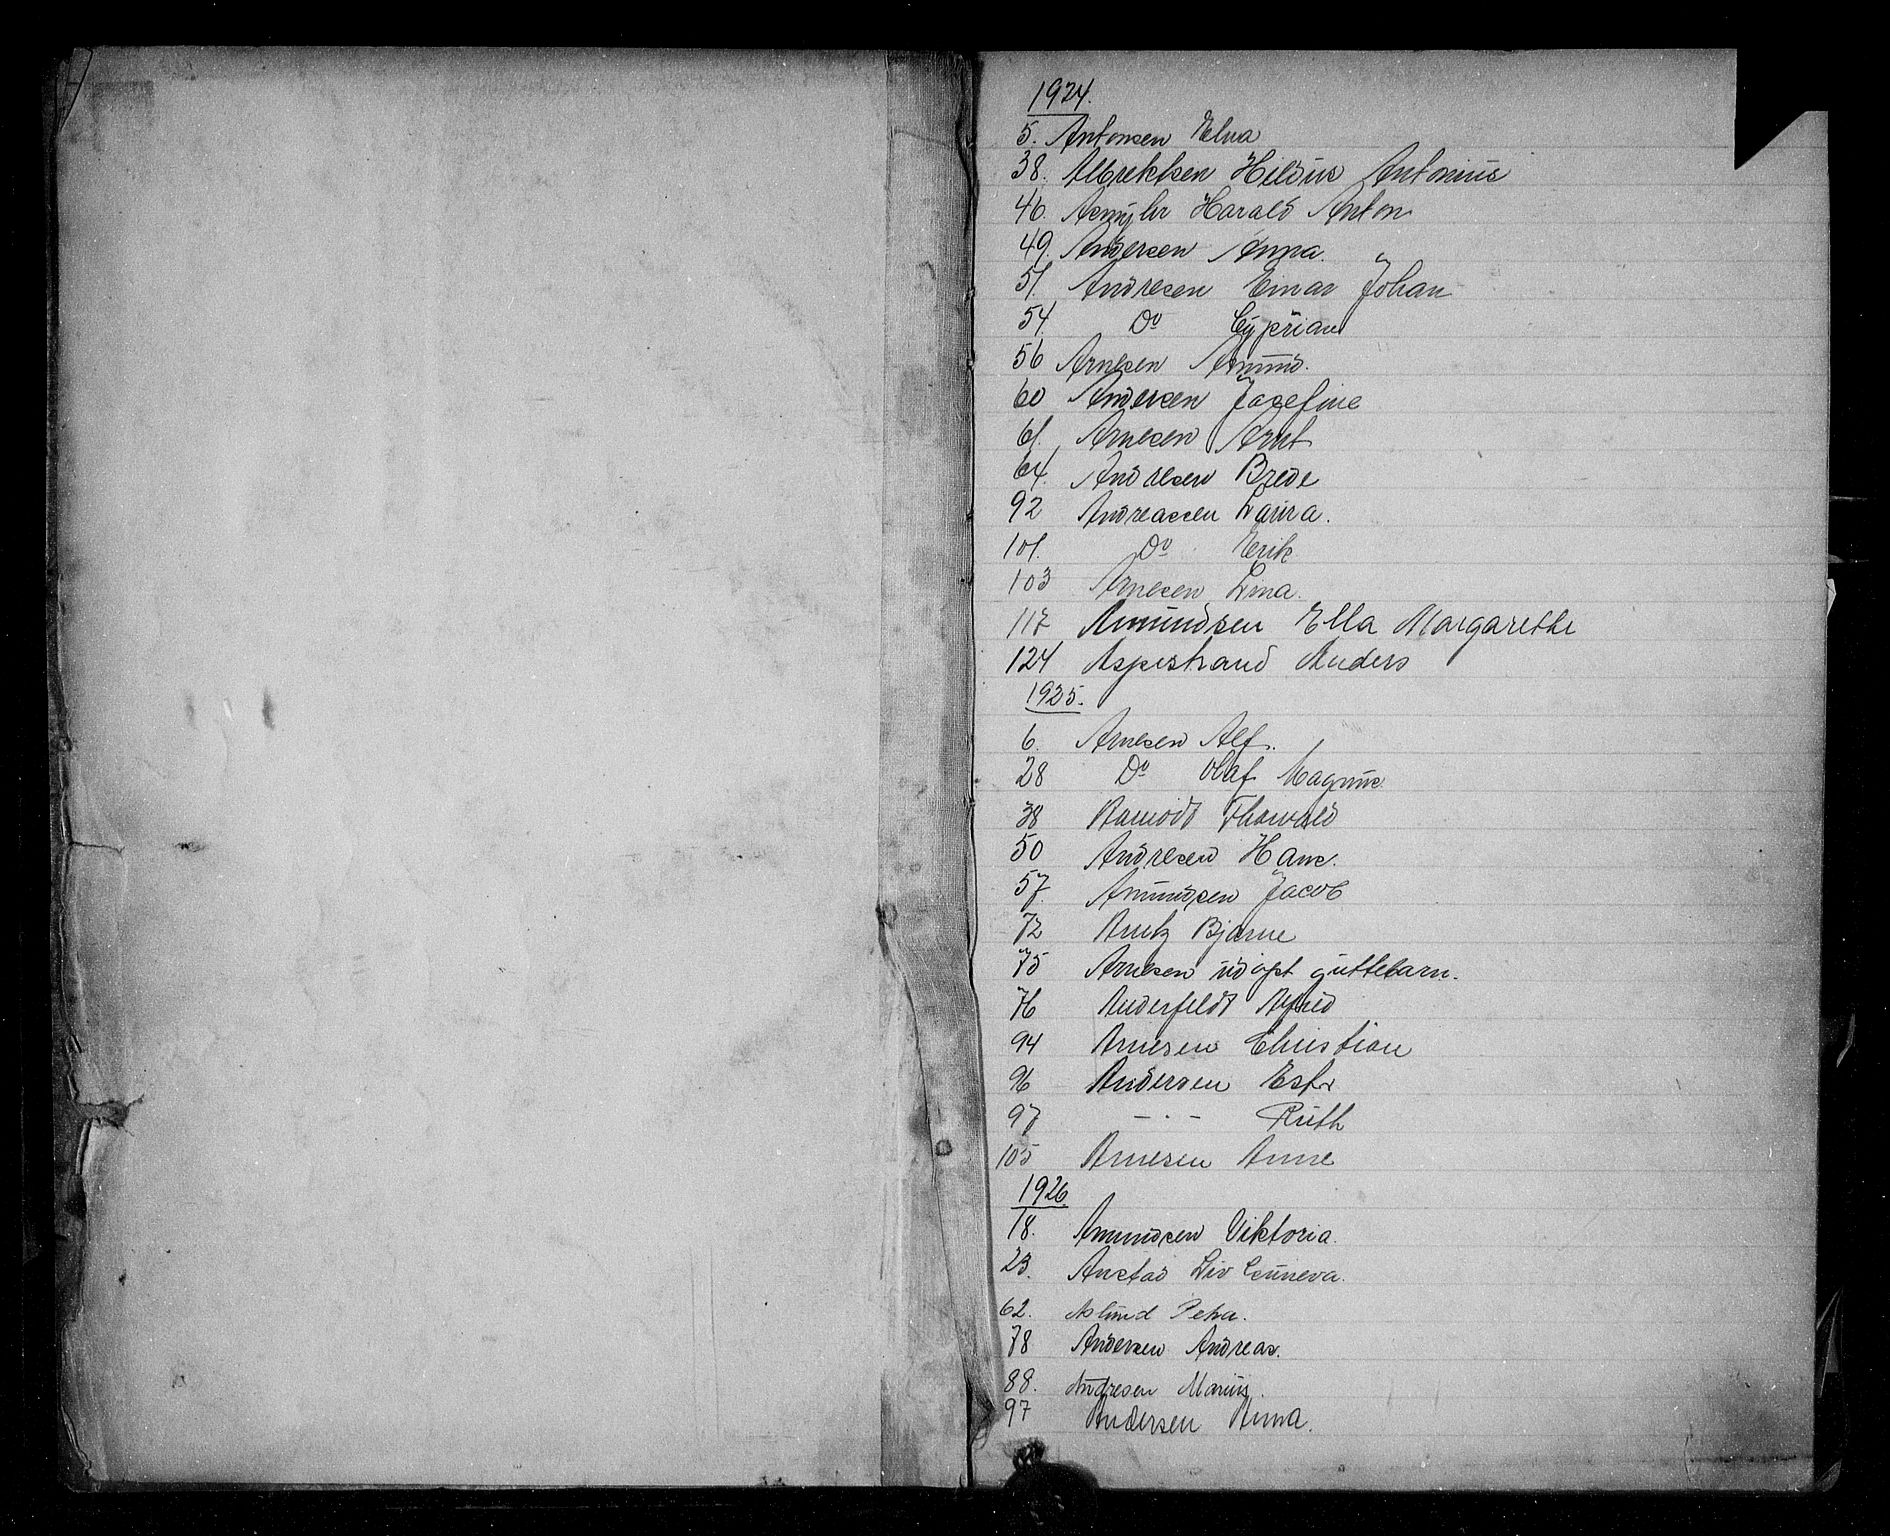 1924.
5. Antonsen Elna
38. Albrektsen Hildus Antonius
46. Harald Anton
49. Andersen Anna.
51. Andresen Einar Johan
54. Do Cyprian
56 Arnesen Amund.
60 Andersen Josefine
61. Arnesen Arnt
64. Andresen Brede
92 Andreassen Laura.
101. Do Erik
103 Arnesen Lina.
117 Amundsen Ella Margarethe
124 Aspestrand Anders
1925.
6. Arnesen Alf.
28 Do Olaf Magnus.
38 Thorvald
50 Andresen Hans.
57. Amundsen Jacob
72 Arntz Bjarne
75 Arnesen udøpt guttebarn.
76 Anderfeldt Alfred
94 Arnesen Christian
96 Andersen Ester
97 - . - Ruth
105 Arnesen Anne
1926.
18. Amundsen Viktoria.
23. Anstad Liv Gunneva.
62. Aslund Petra.
78 Andersen Andreas.
88. Andresen Marius.
97 Andersen Anna.